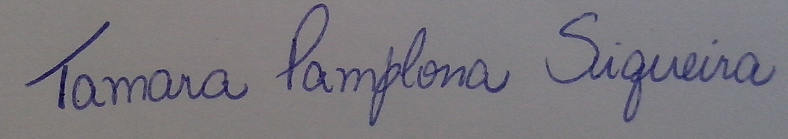 Tamara Pamplona Siqueira